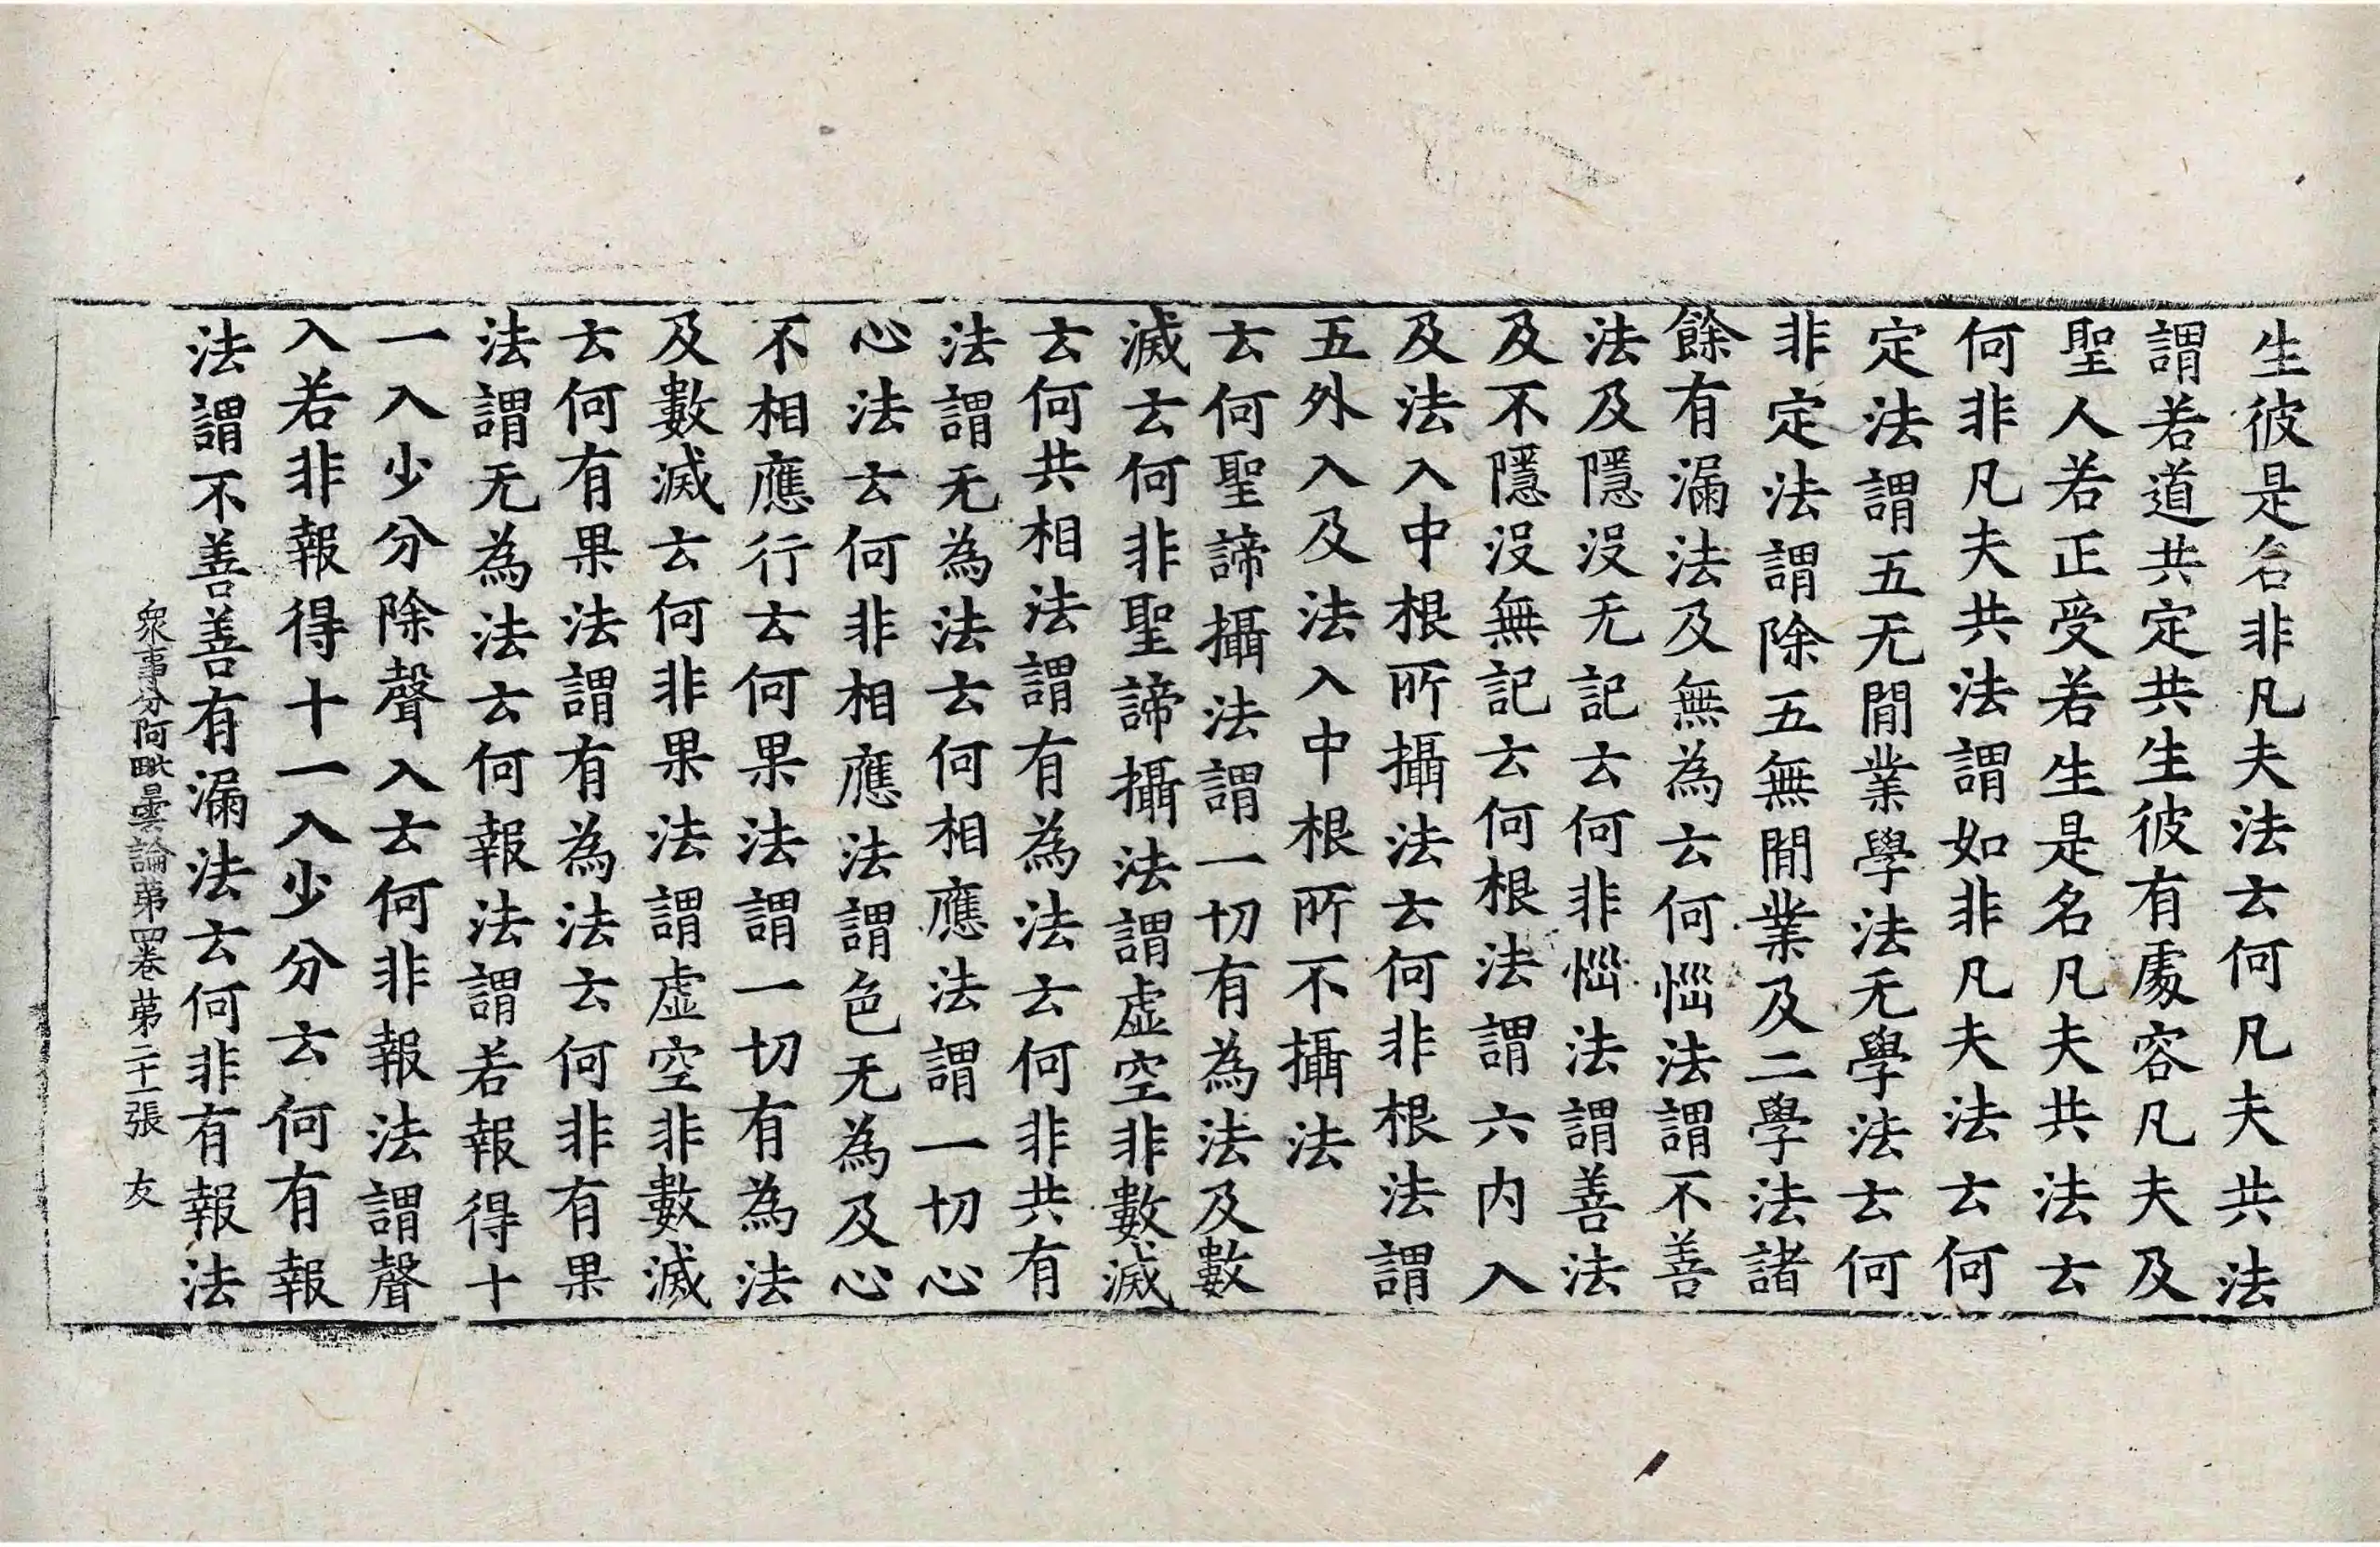 生彼是名非凡夫法云何凡夫共法
謂若道共定共生彼有處容凡夫及
聖人若正受若生是名凡夫共法云
何非凡夫共法謂如非凡夫法云何
定法謂五无閒業學法无學法云何
非定法謂除五無閒業及二學法諸
餘有漏法及無為云何惱法謂不善
法及隱没无記云何非惱法謂善法
及不隱没無記云何根法謂六内入
及法入中根所攝法云何非根法謂
五外入及法入中根所不攝法
云何聖諦攝法謂一切有為法及數
滅云何非聖諦攝法謂虛空非數滅
云何共相法謂有為法云何非共有
法謂无為法云何相應法謂一切心
心法云何非相應法謂色无為及心
不相應行云何果法謂一切有為法
及數滅云何非果法謂虛空非數滅
云何有果法謂有為法云何非有果
法謂无為法云何報法謂若報得十
一入少分除聲入云何非報法謂聲
入若非報得十一入少分云何有報
法謂不善善有漏法云何非有報法
衆事分阿毗曇論苐四卷 苐二十二張 友